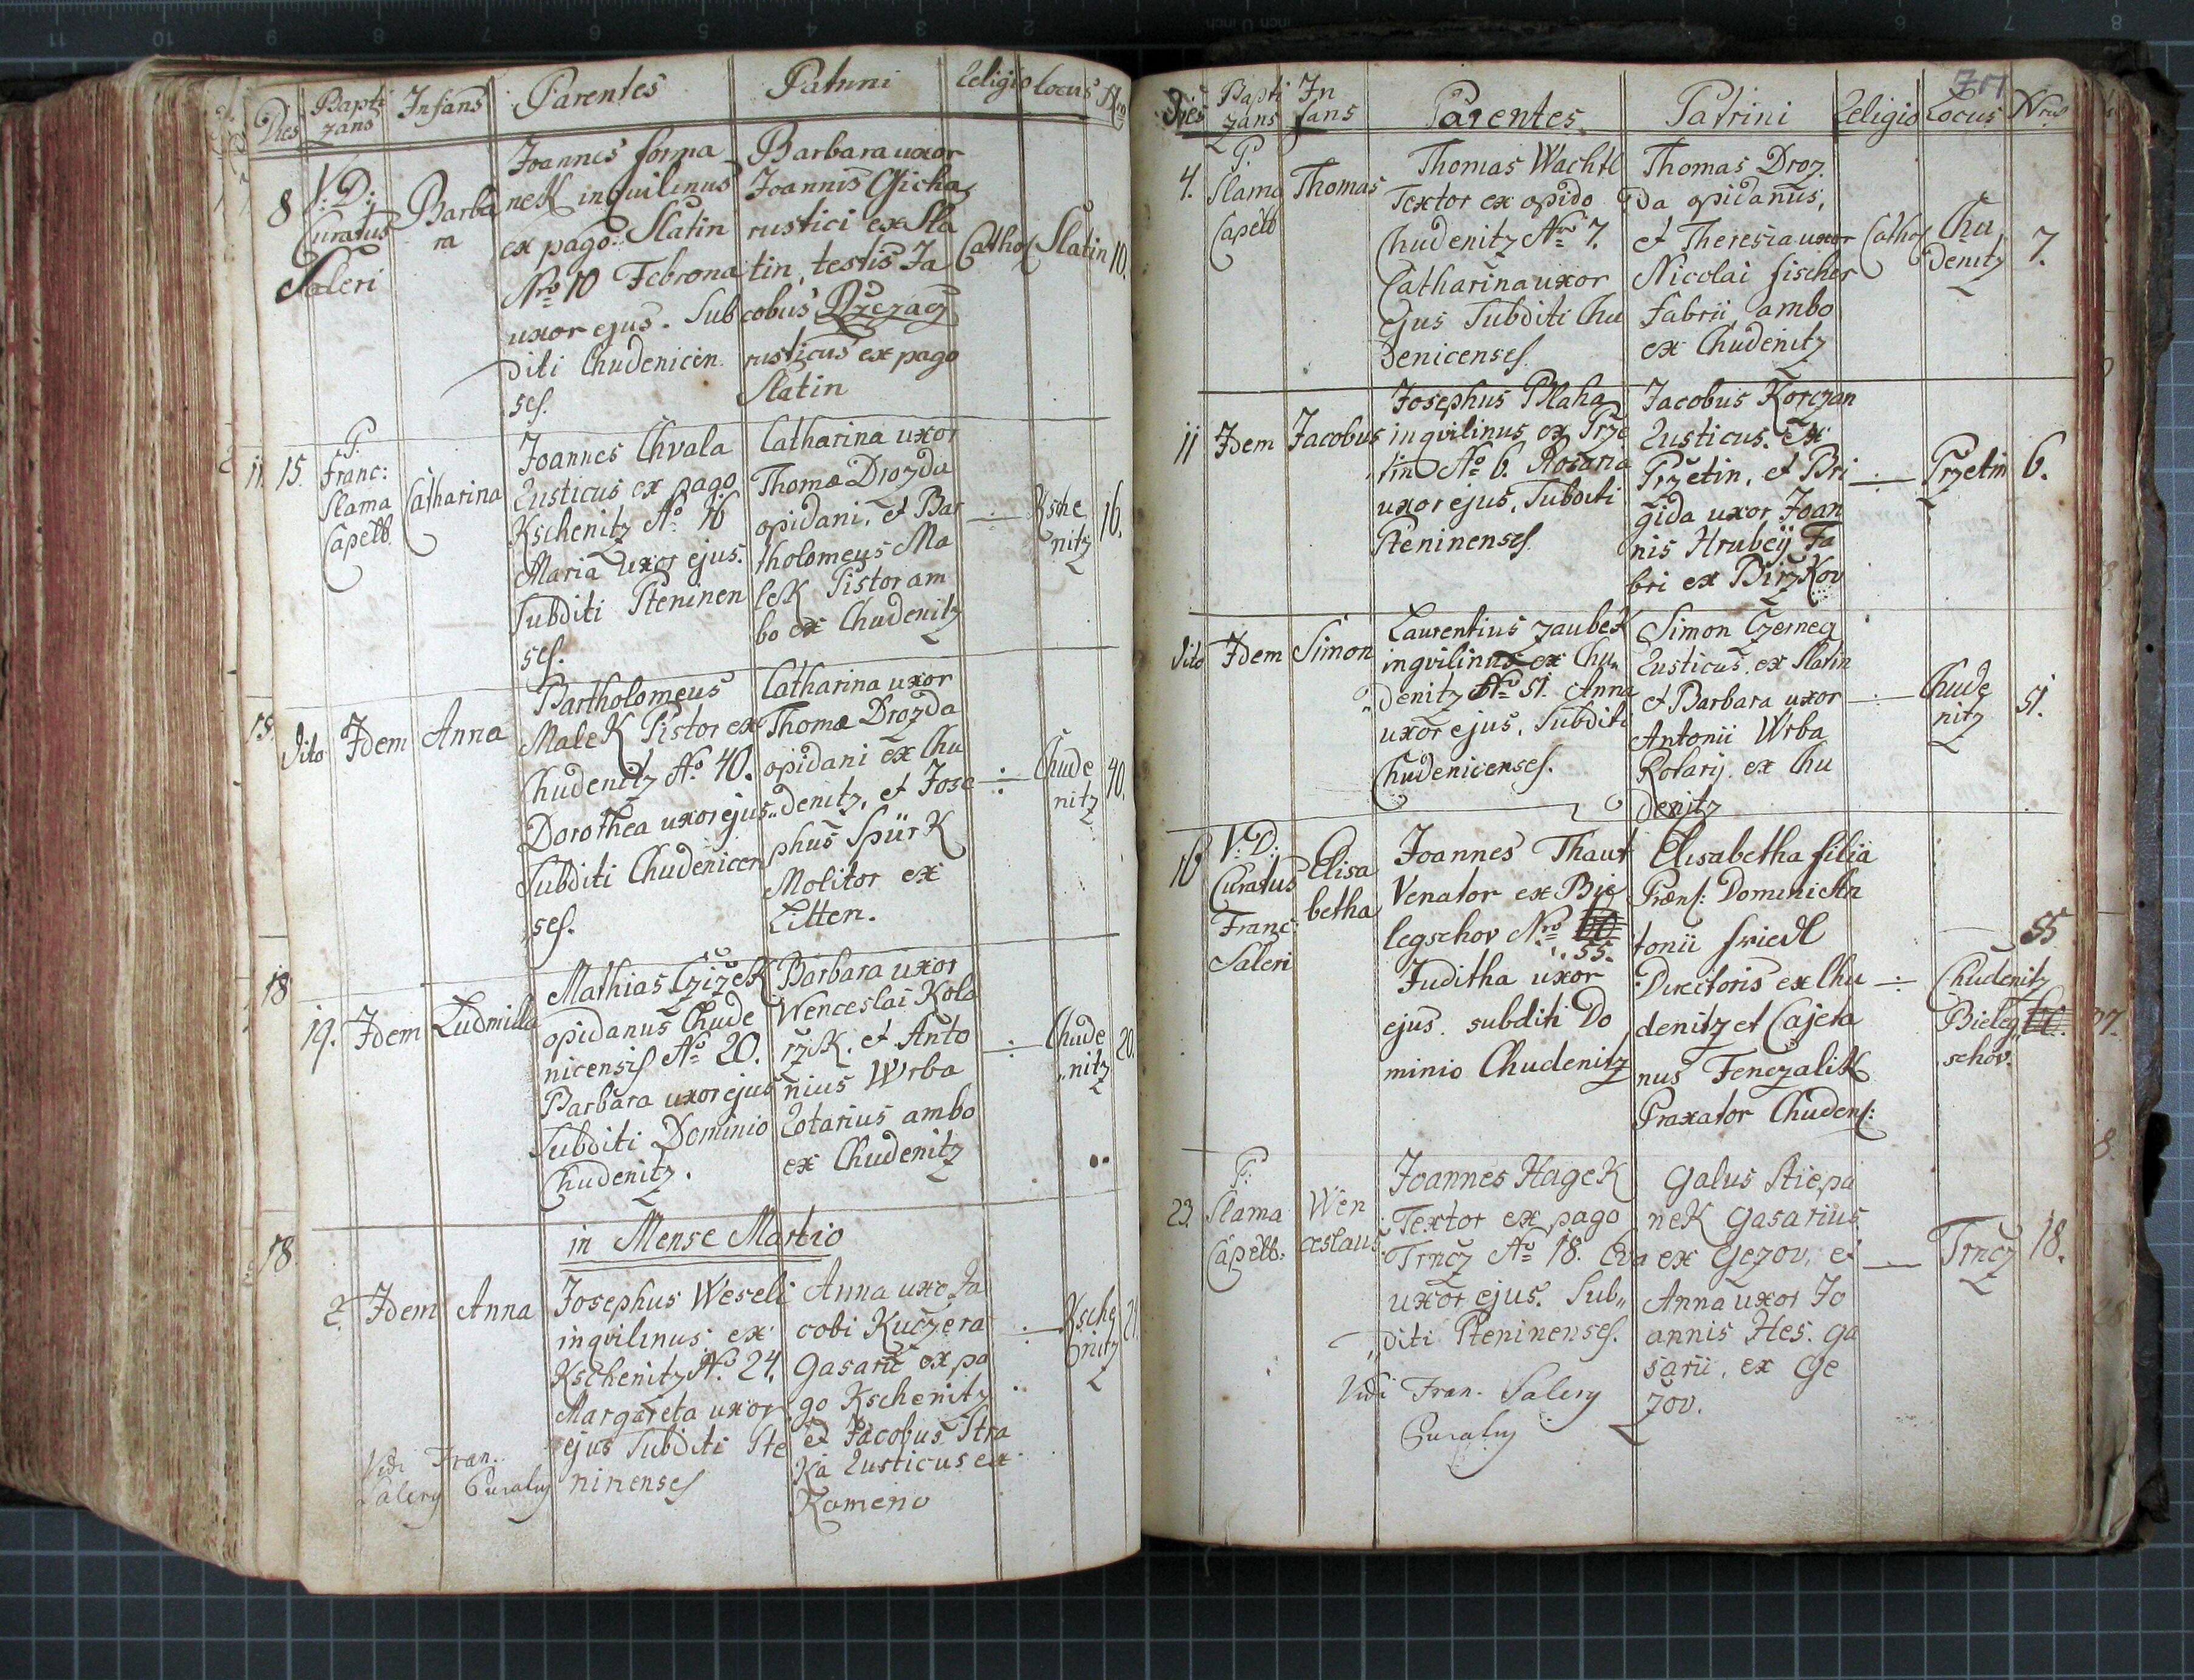 Dies Bapti Infans Parentes Patrini Religio Locus Nro
zans
8 V: D: Curatus Saleri
Barba
ra
Joannes forma
nek inquilinus
ex pago Slatin
Nro 10 Febrona
uxor ejus. Sub
diti Chudenicen
ses.
Barbara uxor
Joannis Gicha
rustici ex Sla
tin, testis Ja
cobus
rusticus ex pago
Slatin
Cathol Slatin 10.
15. P.
Franc:
Slama
Capell.
Catharina
Joannes Chvala
Rusticus ex pago
Kschenitz No 16
Maria uxor ejus.
Subditi Pteninen
ses.
Catharina uxor
Thomæ Drozda
opidani, et Bar
tholomeus Ma
lek Pistor am
bo ex Chudenitz
Ksche
nitz
16.
dito Idem Anna
Bartholomeus
Malek Pistor ex
Chudenitz No 40.
Dorothea uxor ejus
Subditi Chudenicen
ses.
Catharina uxor
Thomæ Drozda
opidani ex Chu
denitz, et Jose
phus Spürk
Molitor ex
Litten.
Chude
nitz
40.
19. Idem Ludmilla
Mathias Cžižek
opidanus Chude
nicensis No 20.
Barbara uxor ejus
Subditi Dominio
Chudenitz.
Barbara uxor
Wenceslai Kolo
rzik. et Anto
nius Wrba
Rotarius ambo
ex Chudenitz
Chude
nitz
20.
in Mense Martio
2. Idem Anna
Josephus Weseli
inqvilinus ex
Kschenitz No 24.
Margareta uxor
ejus Subditi Pte
ninenses
Anna uxo Ja
cobi Kučzera
Gasarii ex pa
go Kschenitz
et Jacobus Stra
ka Rusticus ex
Komeno
Ksche
nitz
24.
Vidi Fran.
Salery Curatus
Dies Bapti In Parentes Patrini Religio Locus Nrus
zans fans
4. P.
Slama
Capell
Thomas
Thomas Wachtl
Textor ex opido
Chudenitz Nro 7.
Catharina uxor
ejus Subditi Chu
denicenses.
Thomas Droz
da opidanus,
et Theresia uxor
Nicolai fischer
fabrii ambo
ex Chudenitz
Cathol Chu
denitz
7.
11 Idem Jacobus
Josephus Blaha
inqvilinus ex Prze
tin No 6. Rosaria
uxor ejus, Subditi
Pteninenses.
Jacobus Korczan
Rusticus ex
Przetin, et Bri
gida uxor Joan
nis Hrubeÿ Fa
bri ex Birzkov
Przetin 6.
dito Idem Simon
Laurentius zaubek
inqvilinus ex Chu
denitz No 51. Anna
uxor ejus, Subditi
Chudenicenses.
Simon Czerneg
Rusticus ex Slatin
et Barbara uxor
Antonii Wrba
Rotarÿ. ex Chu
denitz
Chude
nitz
51.
16 V: D:
Curatus
Franc:
Saleri
Elisa
betha
Joannes Thaut
Venator ex Bie
legschov Nro
55.
Juditha uxor
ejus. subditi Do
minio Chudenitz
Elisabetha filia
Præns: Domini An
tonii friedl
Directoris ex Chu
denitz et Cajeta
nus Fenczalik
Praxator Chudens:
55
Chudenitz
Bieleg
schov.
23. P:
Slama
Capell:
Wen
ceslaus
Joannes Hagek
Textor ex pago
Trnčz No 18. Eva
uxor ejus. Sub
diti Pteninenses.
Galus Stiepa
nek Gasarius
ex Gezov, et
Anna uxor Jo
annis Hes. ga
sarii, ex Ge
zov.
Trnčz 18.
Vidi Fran. Salery
Curatus